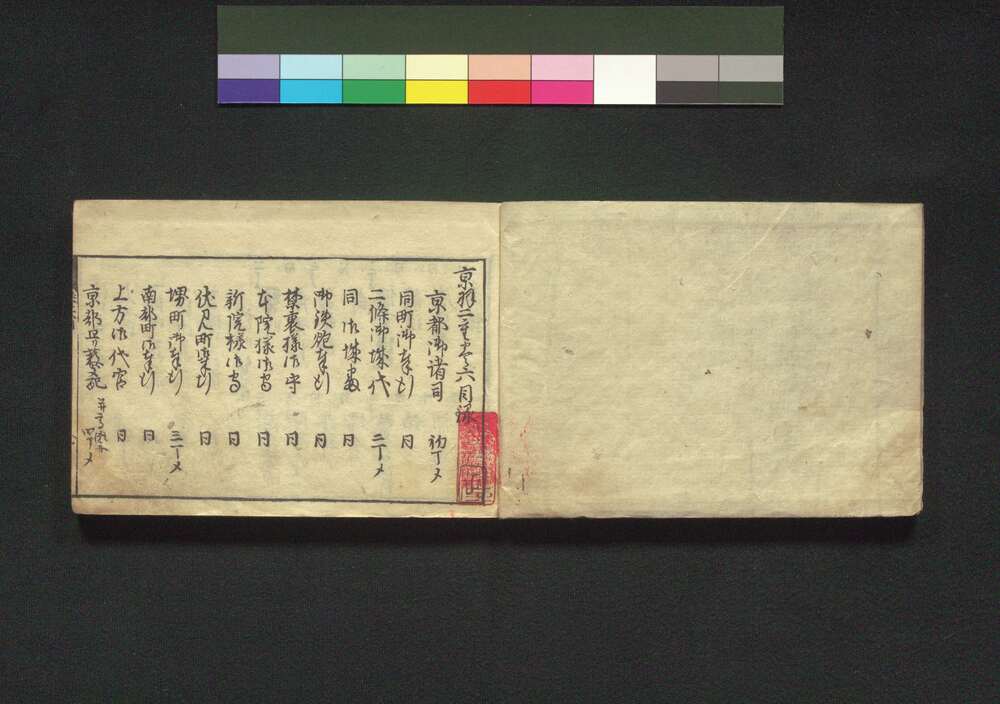 京羽二重巻六目録
京都御諸司 初丁メ
同町御奉行 同
二條御城代 二丁メ
同御城番 同
御鉄炮奉行 同
禁裏様御守 同
本院様御守 同
新院様御守 同
伏見町御奉行 同
堺町御奉行 三丁メ
南都町御奉行 同
上方御代官 同
京都ヨリ 四丁メ